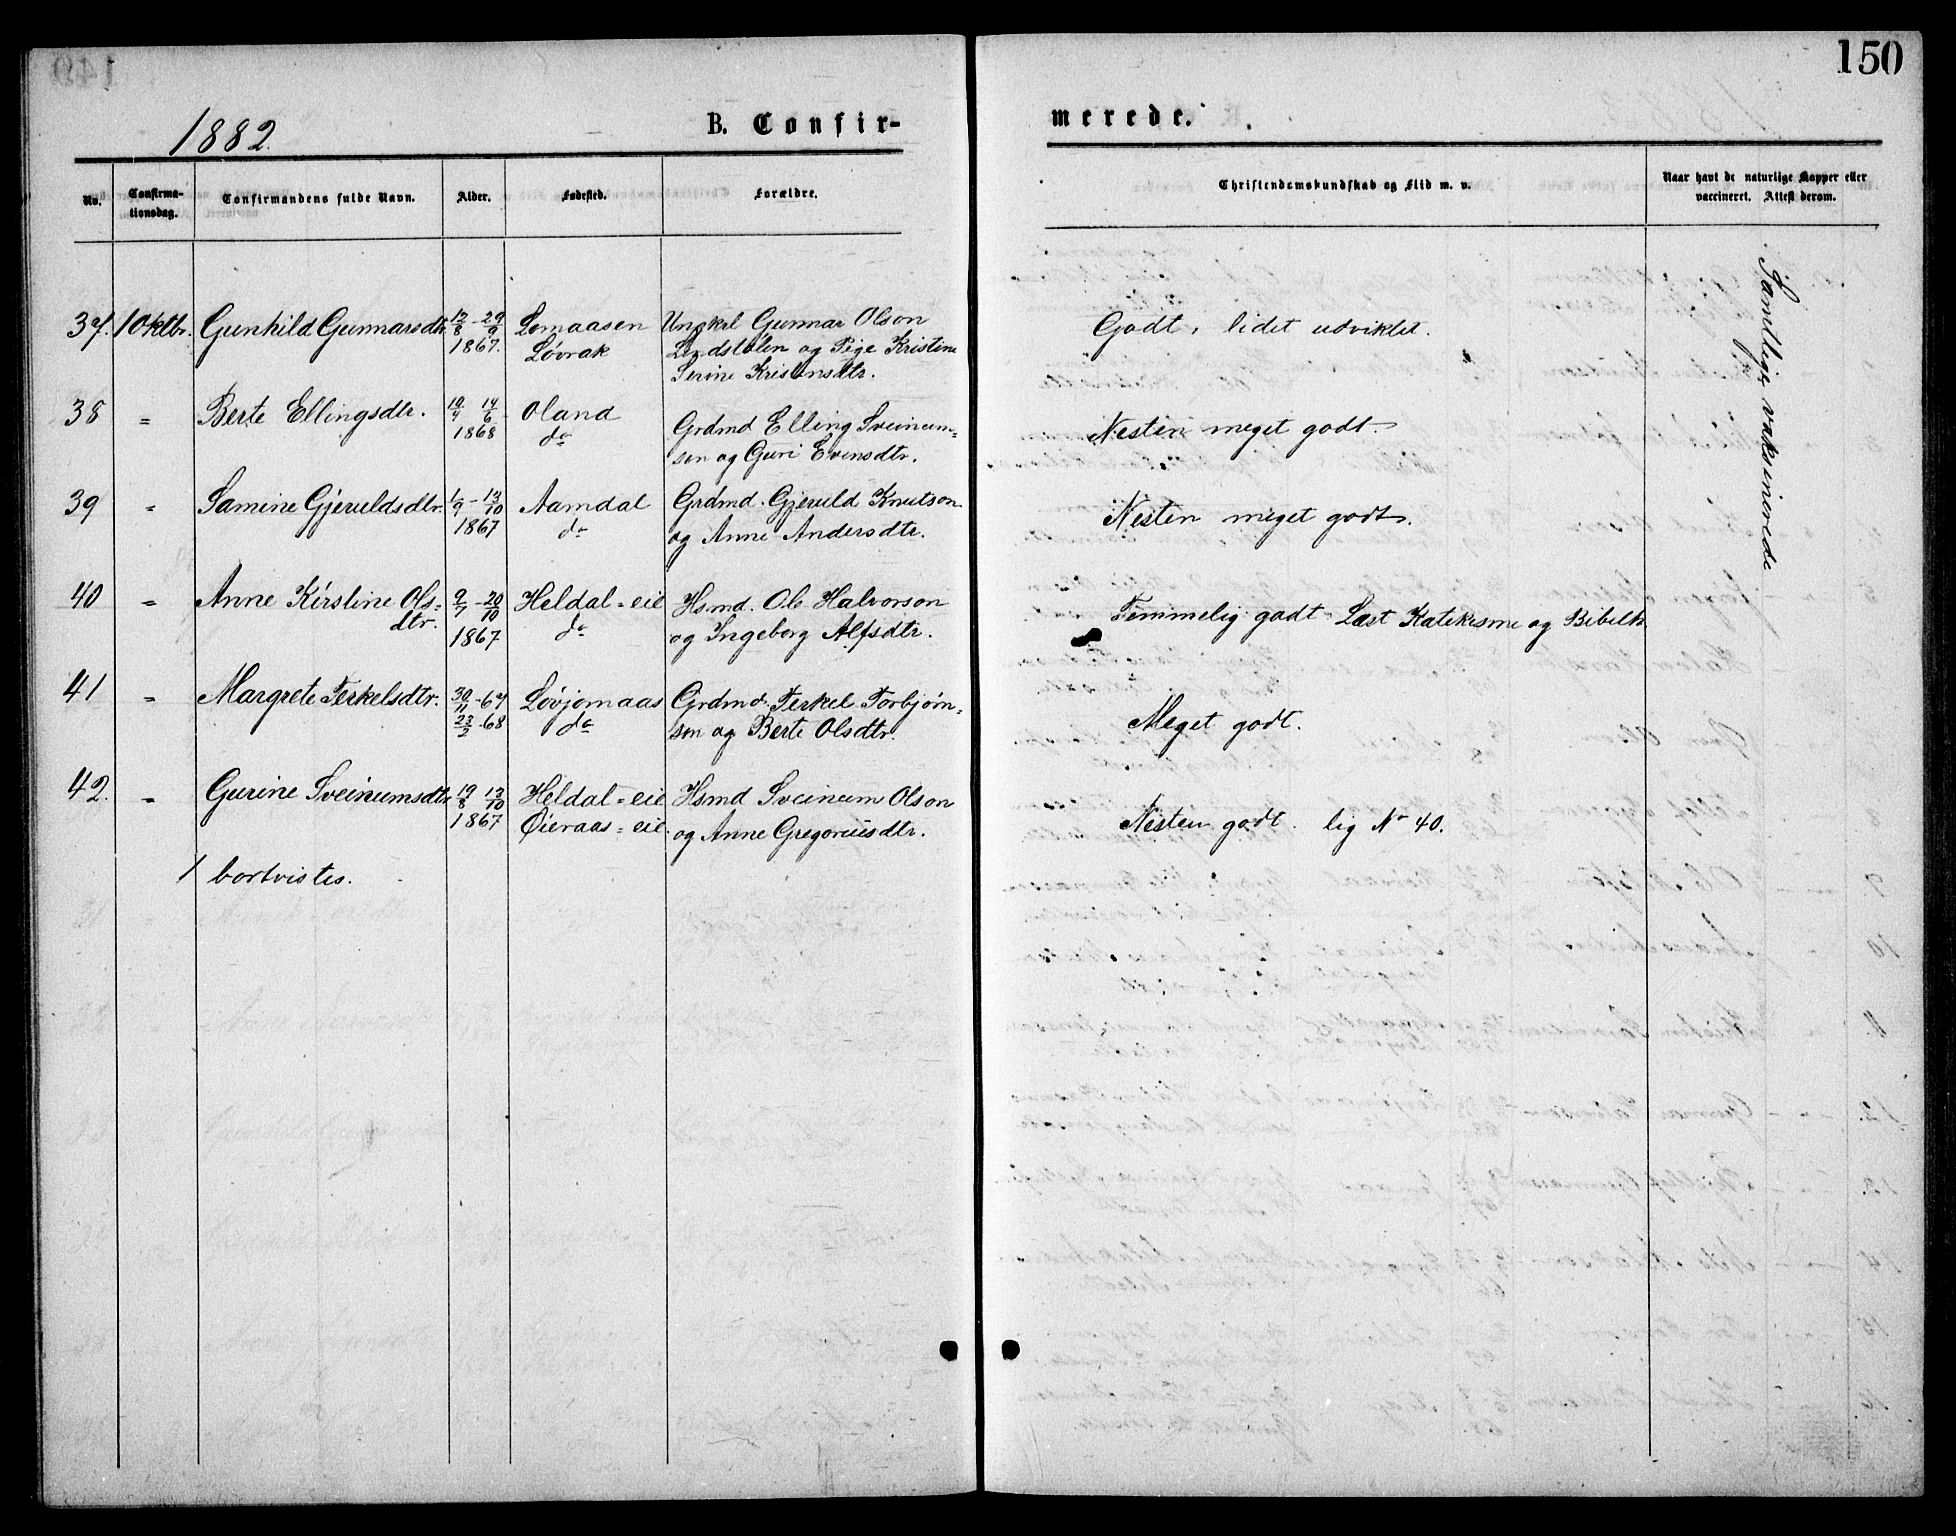 150
1882.
B. Confir-
merede.
No.
Confirma-
tionsdag.
Confirmandens fulde Navn.
Alder.
Fødested.
Forældre.
Christendomskundskab og Flid m. v.
Naar havt de naturlige Kopper eller
vaccineret. Attest derom.
Samtlige vaksinerede
37. 1 Oktbr. Gunhild Gunnarsdtr. 12/8 - 29/9 Lomaasen Ungkrl Gunnar Olson
1867. Løvrak og Pige Kristine
Serine Kristensdtr.
Godt, lidet udviklet.
38 " Berte Ellingsdtr. 14/6 Oland Grdmd Elling Sveinum-
1868 do son og Guri Evensdtr.
Nesten meget godt.
39 " Samine Gjeruldsdtr. 1/9 - 13/10 Aamdal Grdmd. Gjeruld Knutson
1867 do og Anne Andersdtr.
Nesten meget godt.
40 " Anne Kirstine Ols- 20/10 Heldal-eie Hsmd. Ole Halvorson
dtr. 1867 do og Ingeborg Alfsdtr.
Temmelig godt Læst Katekisme og Bibelh
41 " Margrete Terkelsdtr. 30/11 - 67 Løvjomaas Grdmd. Terkel Torbjørn-
23/2 - 68 do son og Berte Olsdtr.
Meget godt.
42. " Gurine Sveinumsdtr 19/8 13/10 Heldal-eie Hsmd Sveinum Olson
1867 Øieraas-eie. og Anne Gregoriusdtr.
Nesten godt. lig No 40.
1 bortvistes.